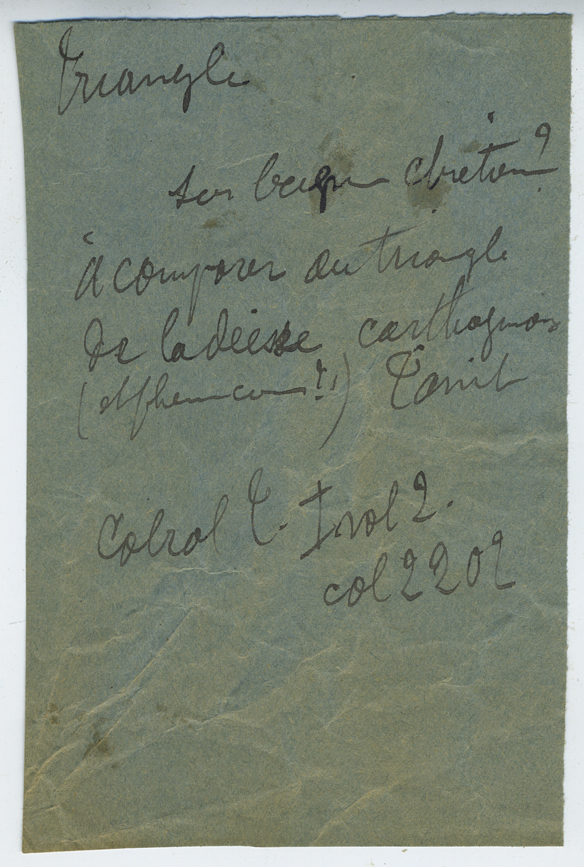 triangle
sur bague chrétien?
à comparer au triangle
de la déesse carthaginoise
(et phénicienne?) Tanit
Cabrol T. I vol 2.
col 2202